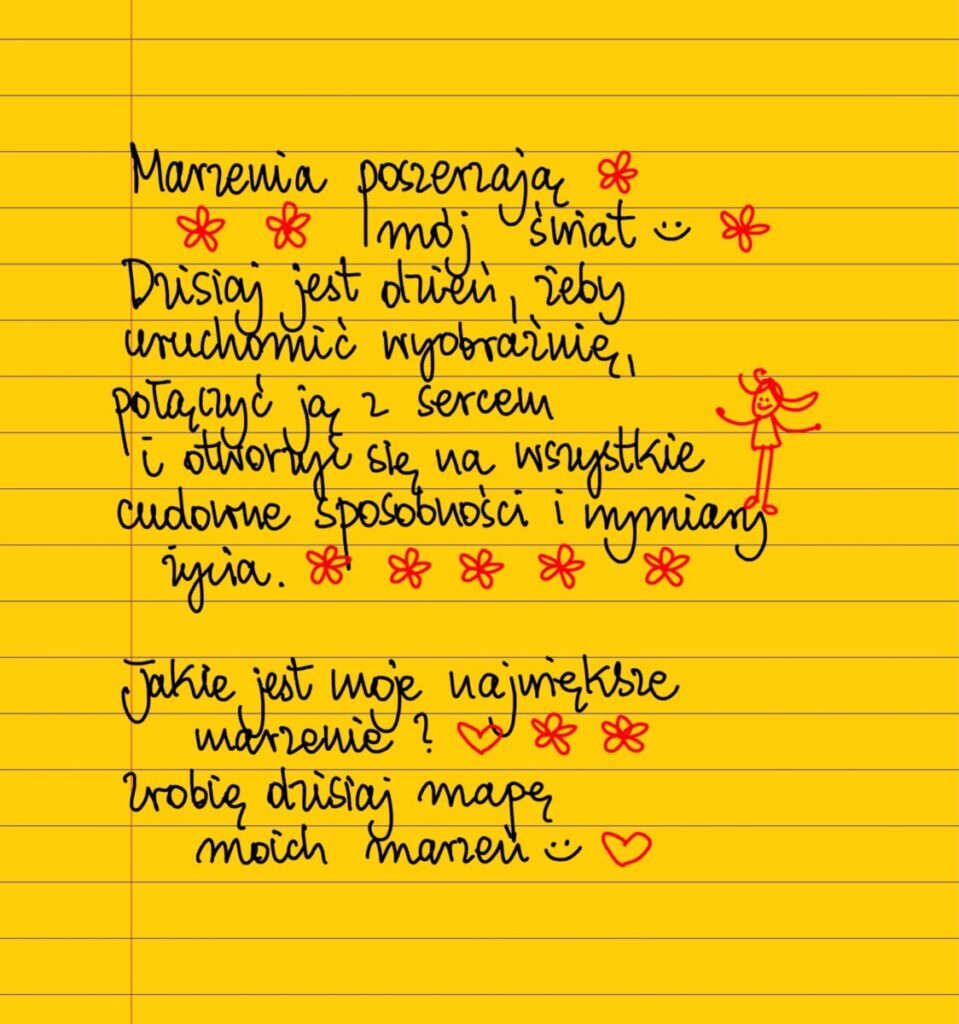 Marzenia poszerzają
mój świat :)
Dzisiaj jest dzień, żeby
uruchomić wyobraźnię,
połączyć ją z sercem
i otworzyć się na wszystkie
cudowne sposobności i wymiary
życia.
Jakie jest moje największe
marzenie?
Zrobię dzisiaj mapę
moich marzeń :)